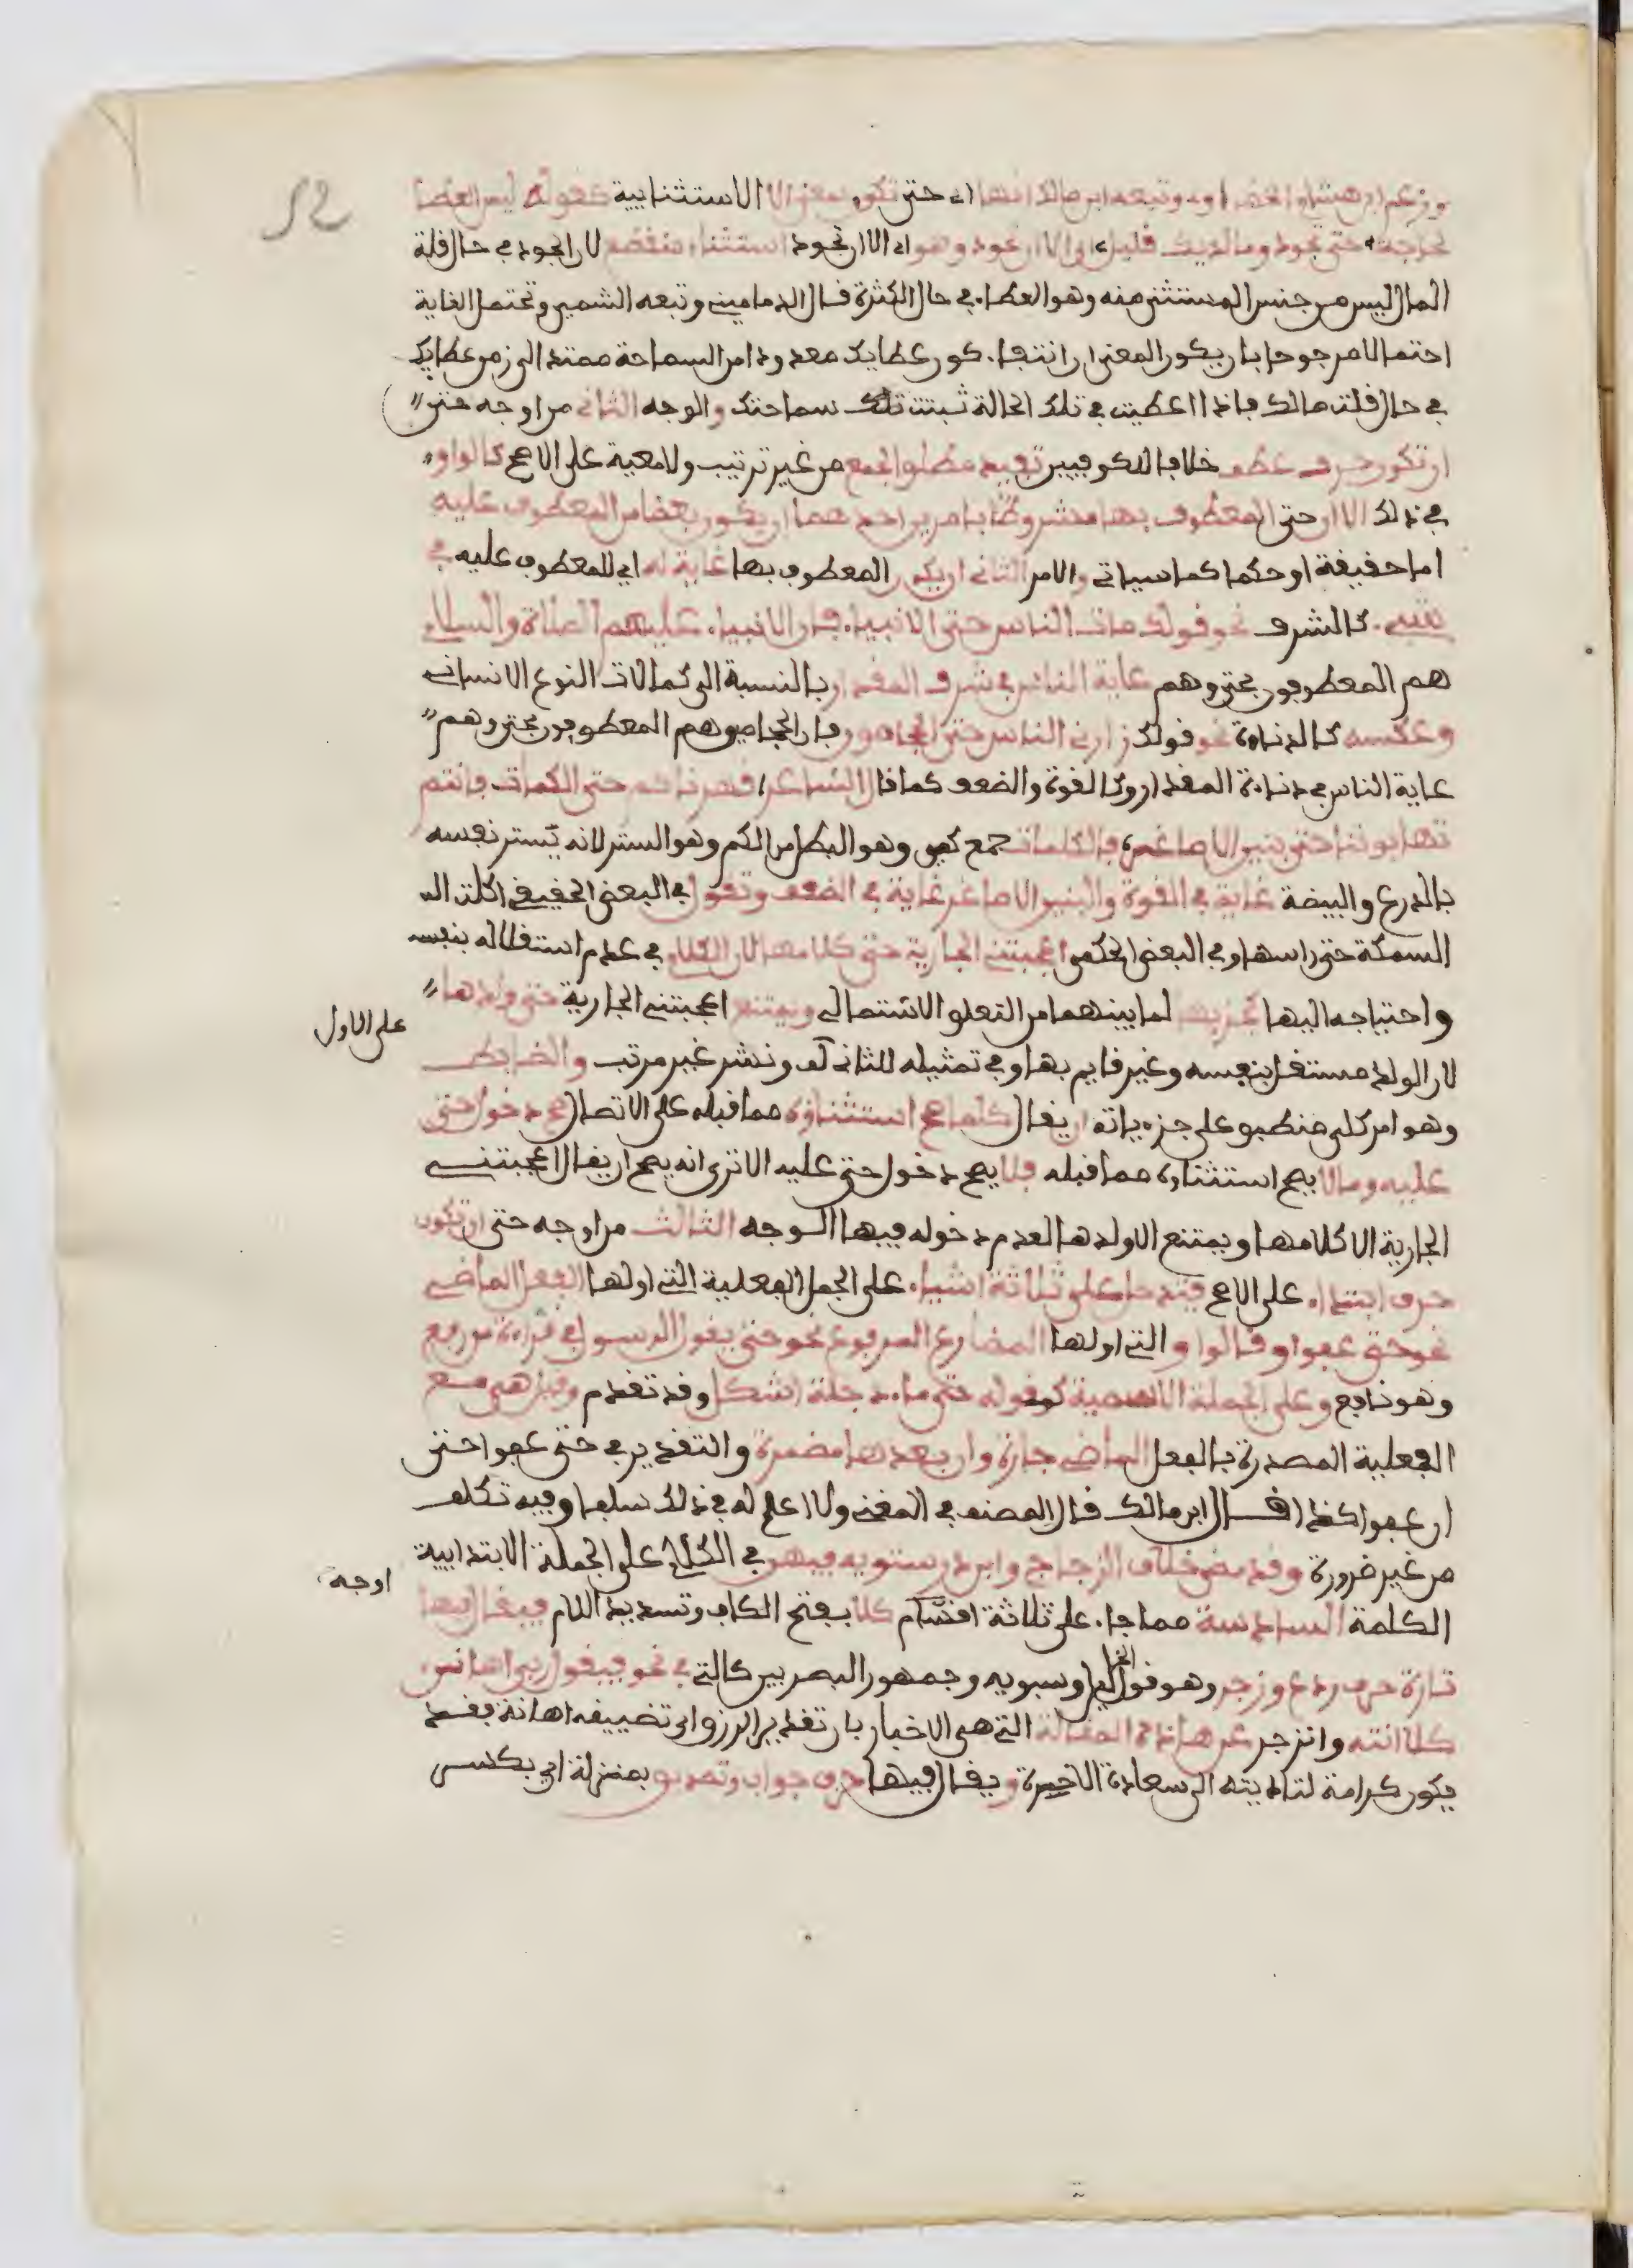 52
وزعم ابن هشام الخضراوي وتبعه ابن مالك انها اي حتى تكون بمعنى الا الاستثنايية كقوله ليس العطاء
سماحة حتى تجود وما لديك قليل اي الا ان تجود وهو اي الا ان تجود استثناء منقطع لان الجود في حال قلة
المال ليس من جنس المستثنى منه وهو العطاء في حال الكثرة قال الدماميني وتبعه الشمني وتحتمل الغاية
احتمالا مرجوحا بان يكون المعنى ان انتفاء كون عطايك معدودا من السماحة ممتد الى زمن عطايك
في حال قلت مالك فاذا اعطيت في تلك الحالة ثبتت تلك سماحتك والوجه الثاني من اوجه حتى
ان تكون حرف عطف خلافا للكوفيين تفيد مطلق الجمع من غير ترتيب ولا معية على الاصح كالواو
في ذلك الا ان حتى المعطوف بها مشروط بامرين احدهما ان يكون بعضا من المعطوف عليه
اما حقيقة او حكما كما سياتي والامر الثاني ان يكون المعطوف بها غاية له اي للمعطوف عليه في
شيء كالشرف نحو قولك مات الناس حتى الانبياء فان الانبياء عليهم الصلاة والسلام
هم المعطوفون بحتى وهم غاية الناس في شرف المقدار بالنسبة الى كمالات النوع الانساني
وعكسه كالدناءة نحو قولك زارني الناس حتى الحجامون فان الحجامون هم المعطوفون بحتى وهم
غاية الناس في دناءة المقدار وكالقوة والضعف كما قال الشاعر قهرناكم حتى الكمات فانتم
تهابوننا حتى بنينا الاصاغر فالكمات جمع كمي وهو البطل من الكم وهو الستر لانه يستر نفسه
بالدرع والبيضة غاية في القوة والبنين الاصاغر غاية في الضعف وتقول في البعض الحقيقي اكلت
السمكة حتى راسها وفي البعض الحكمي اعجبتني الجارية حتى كلامها لان الكلام في عدم استقلاله بنفسه
واحتياجه اليها كجزيها لما بينهما من التعلق الاشتمالي ويمتنع اعجبتني الجارية حتى ولدها
لان الولد مستقل بنفسه وغير قايم بها وفي تمثيله للثاني لف ونشر غير مرتب والضابط
على الاول
وهو امر كلي منطبق على جزءياته ان يقال كلما صح استثناؤه مما قبله على الاتصال صح دخول حتى
عليه وما لا يصح استثناؤه مما قبله فلا يصح دخول حتى عليه الا ترى انه يصح ان يقال اعجبتني
الجارية الا كلامها ويمتنع الا ولدها لعدم دخوله فيها الوجه الثالث من اوجه حتى ان تكون
حرف ابتداء على الاصح فتدخل على ثلاثة اشياء على الجمل الفعلية التي اولها الفعل الماضي
نحو حتى عفوا وقالوا والتي اولها المضارع المرفوع نحو حتى يقول الرسول في قراءة من رفع
وهو نافع وعلى الجملة الاسمية كقوله حتى ماء دجلة اشكل وقد تقدم وقيل هي مع
الفعلية المصدرة بالفعل الماضي جارة وان بعدها مضمرة والتقدير في حتى عفوا حتى
ان عفوا كذا قال ابن مالك قال المصنف في المغني ولا اعلم له في ذلك سلفا وفيه تكلف
من غير ضرورة وقد مضى خلاف الزجاج وابن درستويه فيهن في الكلام على الجملة الابتدايية
الكلمة السادسة مما جاء على ثلاثة اقسام كلا بفتح الكاف وتشديد اللام فيقال فيها
اوجه
تارة حرف ردع وزجر وهو قول الخليل وسبويه وجمهور البصريين كالتي في نحو فيقول ربي اهانن
كلا انته وانزجر عن هذه المقالة التي هي الاخبار بان تقدير الرزق اي تضييقه اهانة فقد
يكون كرامة لتاديته الى سعادة الاخرة ويقال فيها حرف جواب وتصديق بمنزلة اي بكسر